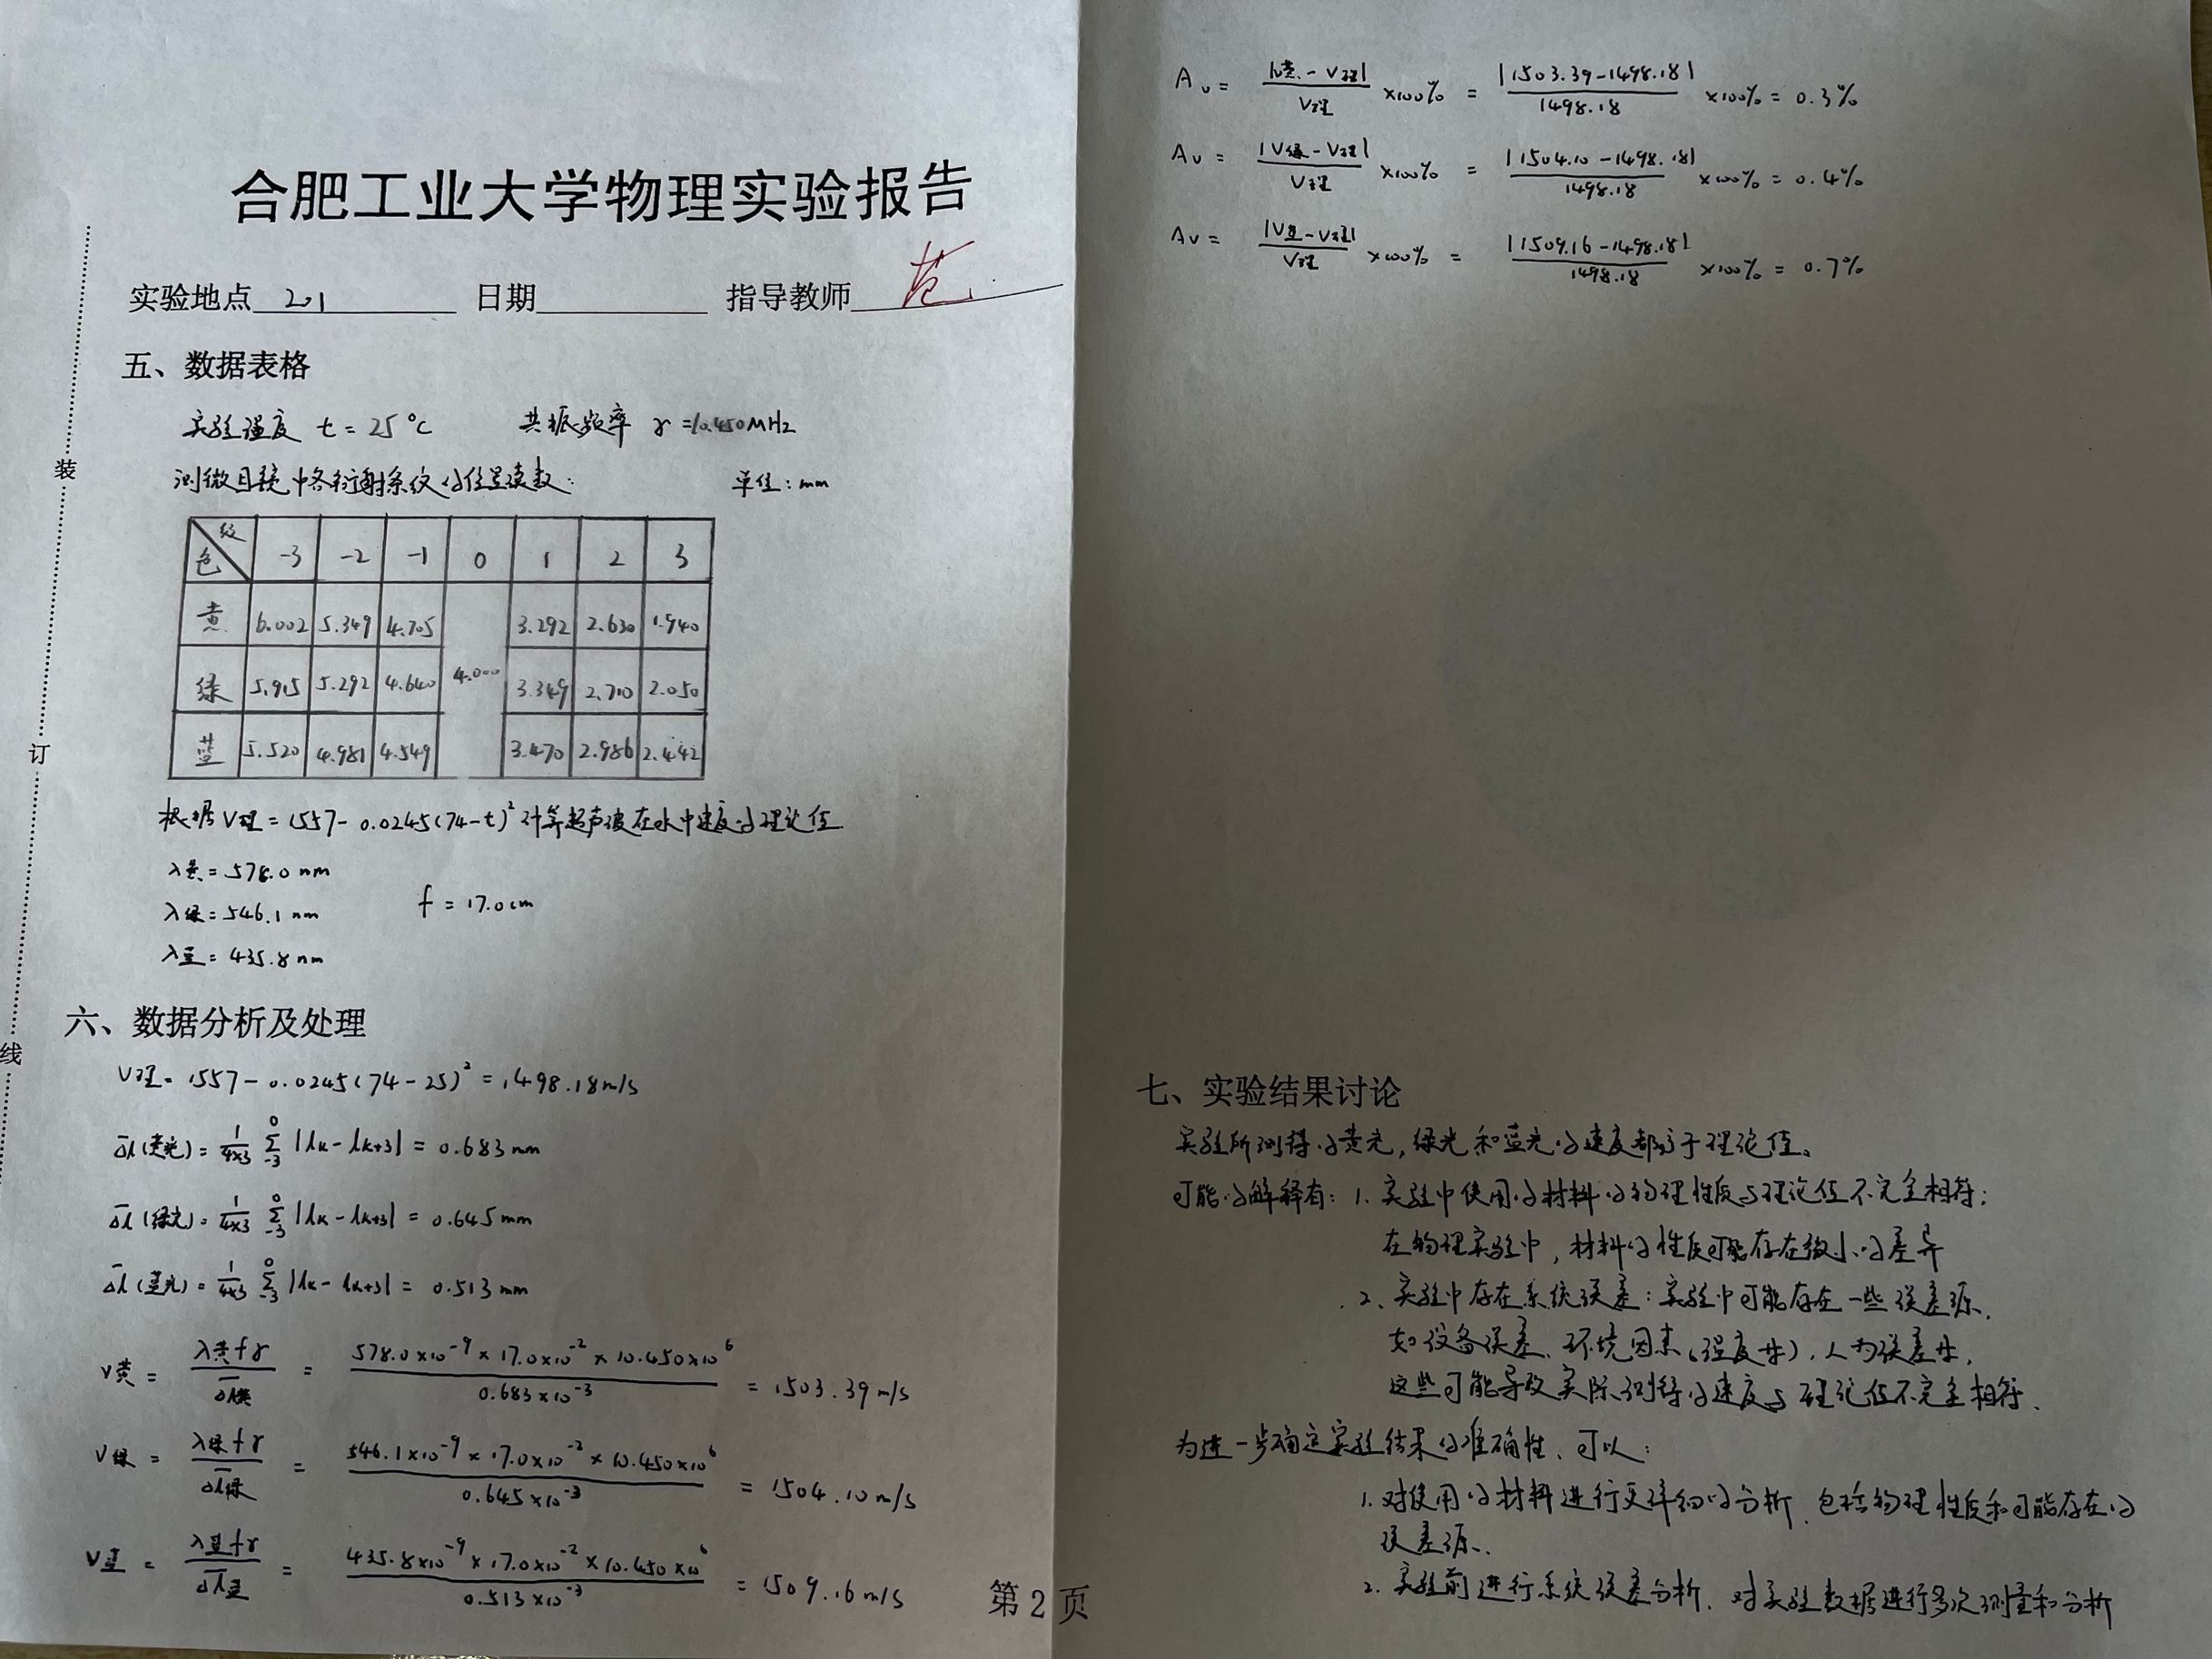 合肥工业大学物理实验报告
实验地点 201 日期 指导教师 范
五、数据表格
实验温度 t = 25°C 共振频率 γ = 10.450MHz
测微目镜中各衍射条纹的位置读数: 单位: mm
色 纹 -3 -2 -1 0 1 2 3
黄 6.002 5.349 4.705 3.292 2.630 1.940
绿 5.915 5.292 4.640 4.000 3.349 2.710 2.050
蓝 5.520 4.981 4.549 3.470 2.986 2.442
根据 V理 = 1557 - 0.0245(74-t)² 计算超声波在水中速度的理论值.
λ黄 = 578.0 nm
λ绿 = 546.1 nm f = 17.0cm
λ蓝 = 435.8 nm
六、数据分析及处理
V理 = 1557 - 0.0245(74-25)² = 1498.18m/s
Δl̄(黄光) = 1/(4×3) Σ(-3→0) |lk - lk+3| = 0.683 mm
Δl̄(绿光) = 1/(4×3) Σ(-3→0) |lk - lk+3| = 0.645 mm
Δl̄(蓝光) = 1/(4×3) Σ(-3→0) |lk - lk+3| = 0.513 mm
V黄 = λ黄fγ/Δl̄黄 = 578.0×10⁻⁹ × 17.0×10⁻² × 10.450×10⁶ / 0.683×10⁻³ = 1503.39 m/s
V绿 = λ绿fγ/Δl̄绿 = 546.1×10⁻⁹ × 17.0×10⁻² × 10.450×10⁶ / 0.645×10⁻³ = 1504.10 m/s
V蓝 = λ蓝fγ/Δl̄蓝 = 435.8×10⁻⁹ × 17.0×10⁻² × 10.450×10⁶ / 0.513×10⁻³ = 1509.16 m/s
第 2 页
装
订
线
Av = |V黄 - V理|/V理 ×100% = |1503.39-1498.18|/1498.18 ×100% = 0.3%
Av = |V绿 - V理|/V理 ×100% = |1504.10-1498.18|/1498.18 ×100% = 0.4%
Av = |V蓝 - V理|/V理 ×100% = |1509.16-1498.18|/1498.18 ×100% = 0.7%
七、实验结果讨论
实验所测得的黄光,绿光和蓝光的速度都于理论值。
可能的解释有: 1. 实验中使用的材料的物理性质与理论值不完全相符:
在物理实验中,材料的性质可能存在微小的差异
2、实验中存在系统误差:实验中可能存在一些误差源,
如设备误差、环境因素(温度等),人为误差等,
这些可能导致实际测得的速度与理论值不完全相符.
为进一步确定实验结果的准确性、可以:
1. 对使用的材料进行更详细的分析、包括物理性质和可能存在的
误差源.
2. 实验前进行系统误差分析、对实验数据进行多次测量和分析